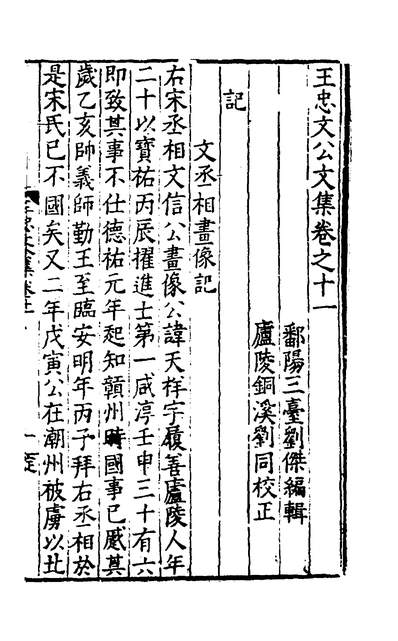 王忠文公文集卷之十一
鄱陽三臺劉傑編輯
廬陵銅溪劉同校正
記
文丞相畫像記
右宋丞相文信公畫像公諱天祥字履善廬陵人年
二十以寶祐丙辰擢進士第一咸淳壬申三十有六
即致其事不仕德祐元年起知贛州時國事已蹙其
歲乙亥帥義師勤王至臨安明年丙子拜右丞相於
是宋氏已不國矣又二年戊寅公在潮州被虜以北